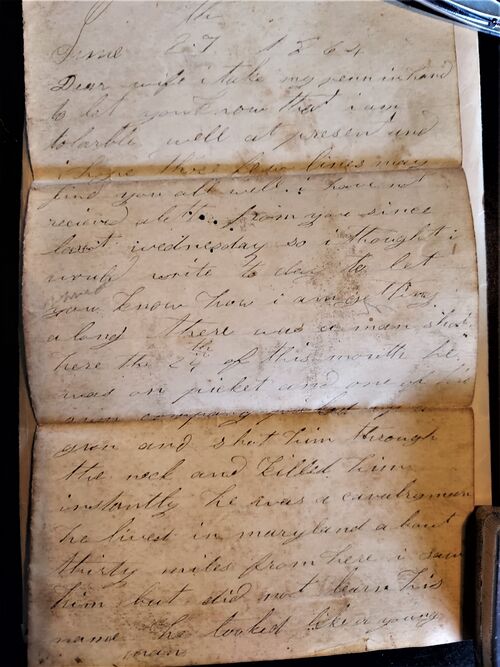 th
June 27 1864
Dear wife i take my penn in hand
to let you know that i am
tolarble well at present and
i hope these few lines may
find you all well. i have not
recieved a letter from you since
last wednesday so i thought i
would write to day to let
you know how i am getting
along there was a man shot
here the 24th of this month he
was on picket and one of his
own company picked up a
gun and shot him through
the neck and killed him
instantly he was a cavalryman
he lived in maryland about
thirty miles from here i saw
him but did not learn his
name he looked like a young
man